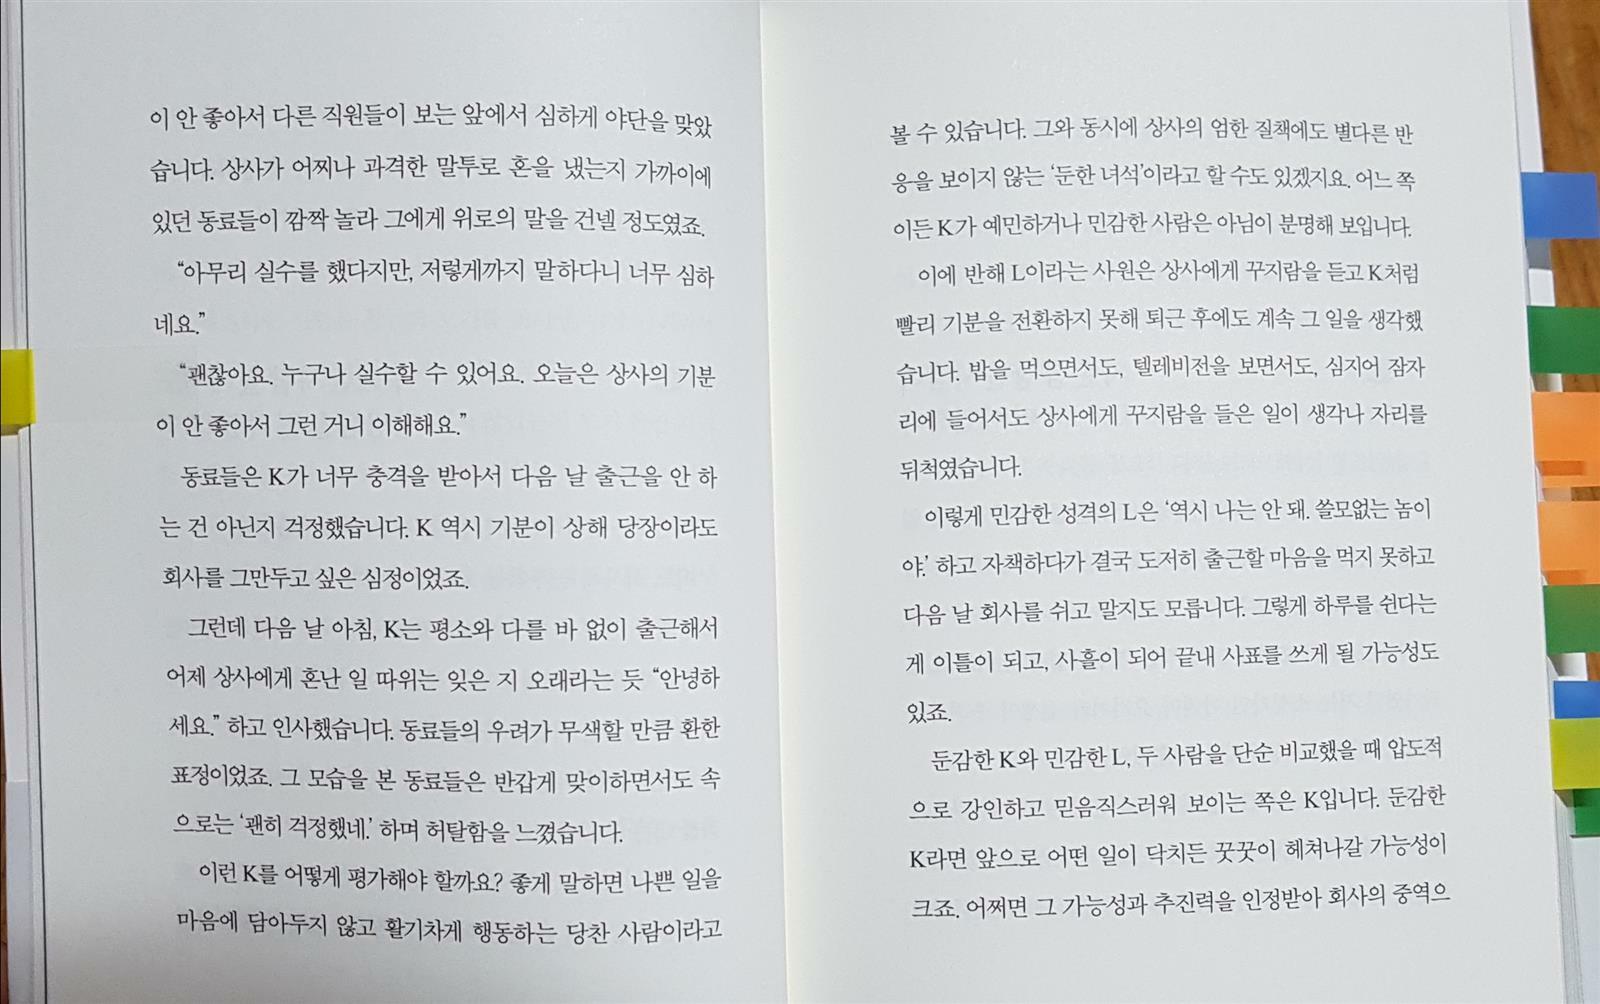 이 안 좋아서 다른 직원들이 보는 앞에서 심하게 야단을 맞았
습니다. 상사가 어찌나 과격한 말투로 혼을 냈는지 가까이에
있던 동료들이 깜짝 놀라 그에게 위로의 말을 건넬 정도였죠.
“아무리 실수를 했다지만, 저렇게까지 말하다니 너무 심하
네요.”
“괜찮아요. 누구나 실수할 수 있어요. 오늘은 상사의 기분
이 안 좋아서 그런 거니 이해해요.”
동료들은 K가 너무 충격을 받아서 다음 날 출근을 안 하
는 건 아닌지 걱정했습니다. K 역시 기분이 상해 당장이라도
회사를 그만두고 싶은 심정이었죠.
그런데 다음 날 아침, K는 평소와 다를 바 없이 출근해서
어제 상사에게 혼난 일 따위는 잊은 지 오래라는 듯 “안녕하
세요.” 하고 인사했습니다. 동료들의 우려가 무색할 만큼 환한
표정이었죠. 그 모습을 본 동료들은 반갑게 맞이하면서도 속
으로는 ‘괜히 걱정했네.’ 하며 허탈함을 느꼈습니다.
이런 K를 어떻게 평가해야 할까요? 좋게 말하면 나쁜 일을
마음에 담아두지 않고 활기차게 행동하는 당찬 사람이라고
볼 수 있습니다. 그와 동시에 상사의 엄한 질책에도 별다른 반
응을 보이지 않는 ‘둔한 녀석’이라고 할 수도 있겠지요. 어느 쪽
이든 K가 예민하거나 민감한 사람은 아님이 분명해 보입니다.
이에 반해 L이라는 사원은 상사에게 꾸지람을 듣고 K처럼
빨리 기분을 전환하지 못해 퇴근 후에도 계속 그 일을 생각했
습니다. 밥을 먹으면서도, 텔레비전을 보면서도, 심지어 잠자
리에 들어서도 상사에게 꾸지람을 들은 일이 생각나 자리를
뒤척였습니다.
이렇게 민감한 성격의 L은 ‘역시 나는 안 돼. 쓸모없는 놈이
야.’ 하고 자책하다가 결국 도저히 출근할 마음을 먹지 못하고
다음 날 회사를 쉬고 말지도 모릅니다. 그렇게 하루를 쉰다는
게 이틀이 되고, 사흘이 되어 끝내 사표를 쓰게 될 가능성도
있죠.
둔감한 K와 민감한 L, 두 사람을 단순 비교했을 때 압도적
으로 강인하고 믿음직스러워 보이는 쪽은 K입니다. 둔감한
K라면 앞으로 어떤 일이 닥치든 꿋꿋이 헤쳐나갈 가능성이
크죠. 어쩌면 그 가능성과 추진력을 인정받아 회사의 중역으